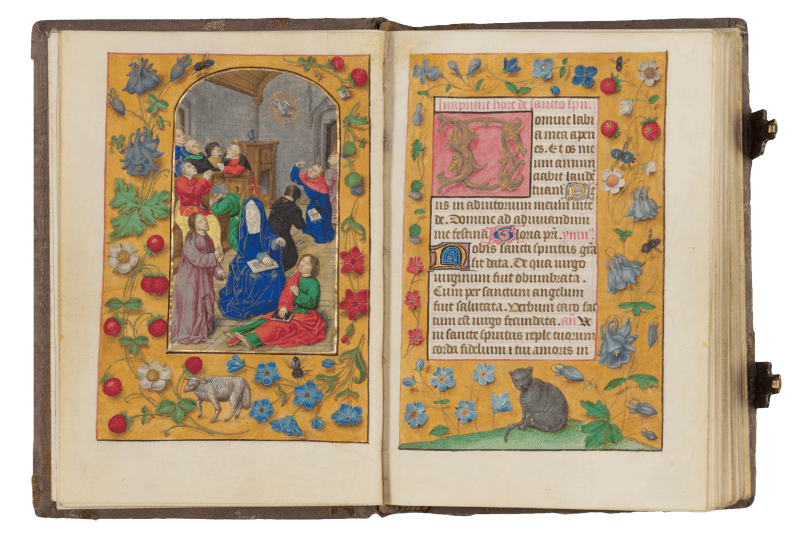 Incipiunt hore de sancto spu.
Domine labi
a mea aperi
es. Et os me
um annun
ciabit laude
tuam. De
us in adiutorium meum inte
de. Domine ad adiuvandum
me festina. Gloria pri. ymn
Nobis sancti spiritus gra
sit data. De qua virgo
virginum fuit obumbrata.
Cum per sanctum angelum
fuit salutata. Verbum caro fac
tum est virgo fecundata. an. Ve
ni sancte spiritus reple tuorum
corda fidelium & tui amoris in